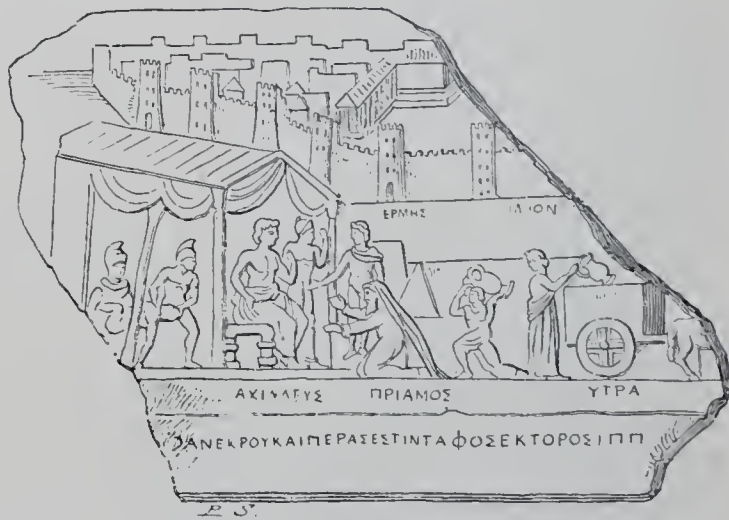 ΕΡΜΗΣ ΙΛΙΟΝ
ΑΧΙΛΛΕΥΣ ΠΡΙΑΜΟΣ ΥΤΡΑ
ΑΝΕΚΡΟΥΚΑΙΠΕΡΑΣΕΣΤΙΝΤΑΦΟΣΕΚΤΟΡΟΣΙΠΠ